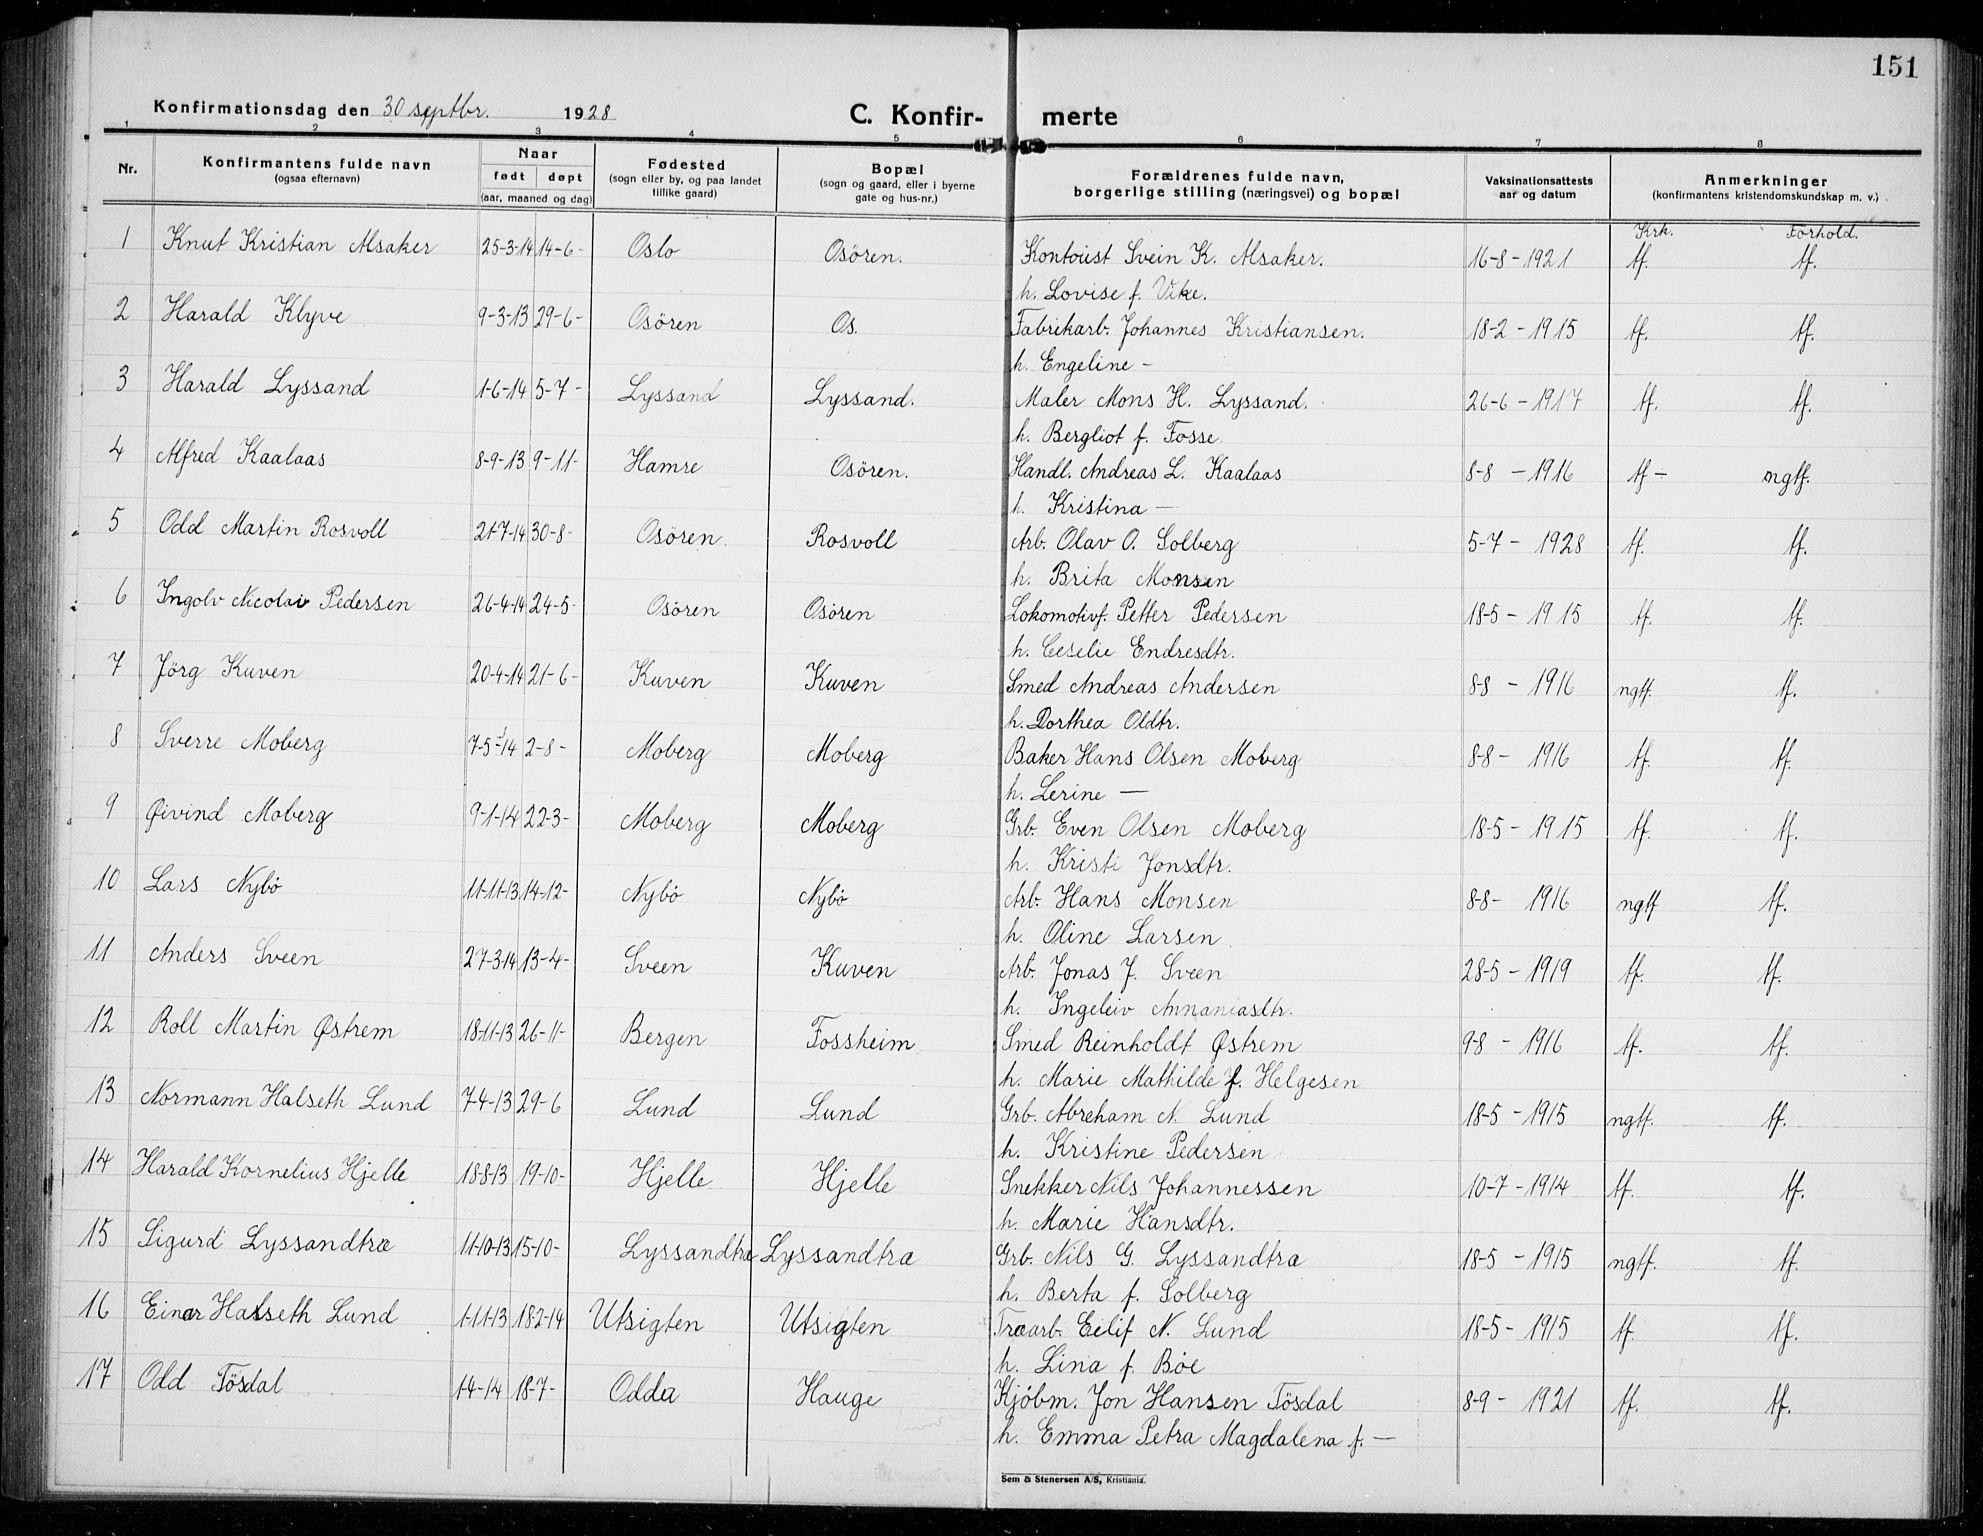 151
Konfirmationsdag den 30 septbr. 1928 C. Konfir- merte
1 2 3 4 5 6 7 8
Nr. Konfirmantens fulde navn (ogsaa efternavn) Naar født døpt (aar, maaned og dag) Fødested (sogn eller by, og paa landet tillike gaard) Bopæl (sogn og gaard, eller i byerne gate og hus-nr.) Forældrenes fulde navn, borgerlige stilling (næringsvei) og bopæl Vaksinationsattests aar og datum Anmerkninger (konfirmantens kristendomskundskap m. v.)
Krk. Forhold.
1 Knut Kristian Alsaker 25-3-14 14-6- Oslo Osören. Kontorist Svein K. Alsaker. 16-8-1921 tf. tf.
h. Lovise f. Vike.
2 Harald Klyve 9-3-13 29-6- Osören Os. Fabrikarb. Johannes Kristiansen. 18-2-1915 tf. tf.
h. Engeline -
3 Harald Lyssand 1-6-14 5-7- Lyssand Lyssand. Maler Mons H. Lyssand. 26-6-1917 tf. tf.
h. Bergliot f. Fosse
4 Alfred Kaalaas 8-9-13 9-11- Hamre Osören. Handl. Andreas L. Kaalaas 8-8-1916 tf- mgtf.
h. Kristina -
5 Odd Martin Rosvoll 21-7-14 30-8- Osören. Rosvoll Arb. Olav O. Solberg 5-7-1928 tf. tf.
h. Brita Monsen
6 Ingolv Nicolai Pedersen 26-4-14 24-5- Osören Osören Lokomotivf. Petter Pedersen 18-5-1915 tf. tf.
h. Ceselie Endresdtr.
7 Jörg Kuven 20-4-14 21-6- Kuven Kuven Smed Andreas Andersen 8-8-1916 ngtf. tf.
h. Dorthea Oldtr.
8 Sverre Moberg 7-5-14 2-8- Moberg Moberg Baker Hans Olsen Moberg 8-8-1916 tf. tf.
h. Lerine -
9 Øivind Moberg 9-1-14 22-3- Moberg Moberg Grb. Even Olsen Moberg 18-5-1915 tf. tf.
h. Kristi Jonsdtr.
10 Lars Nybö 11-11-13 14-12- Nybö Nybö Arb. Hans Monsen 8-8-1916 ngtf tf.
h. Oline Larsen
11 Anders Sveen 27-3-14 13-4- Sveen Kuven Arb. Jonas J. Sveen 28-5-1919 tf. tf.
h. Ingeleiv Annaniasdtr.
12 Roll Martin Østrem 18-11-13 26-11- Bergen Fossheim Smed Reinholdt Østrem 9-8-1916 tf. tf.
h. Marie Mathilde f. Helgesen
13 Normann Halseth Lund 7-4-13 29-6 Lund Lund Grb. Abreham N. Lund 18-5-1915 ngtf. tf.
h. Kristine Pedersen
14 Harald Kornelius Hjelle 18-8-13 19-10- Hjelle Hjelle Snekker Nils Johannessen 10-7-1914 tf. tf.
h. Marie Hansdtr.
15 Sigurd Lyssandtræ 11-10-13 15-10- Lyssandtræ Lyssandtræ Grb. Nils G. Lyssandtræ 18-5-1915 ngtf. tf.
h. Berta f. Solberg
16 Einar Halseth Lund 1-11-13 18-2-14 Utsigten Utsigten Træarb. Eilif N. Lund 18-5-1915 tf tf.
h. Lina f. Böe
17 Odd Tösdal 1-4-14 18-7- Odda Hauge Kjöbm. Jon Hansen Tösdal 8-9-1921 tf. tf.
h. Emma Petra Magdalena f. -
Sem & Stenersen A/S, Kristiania.